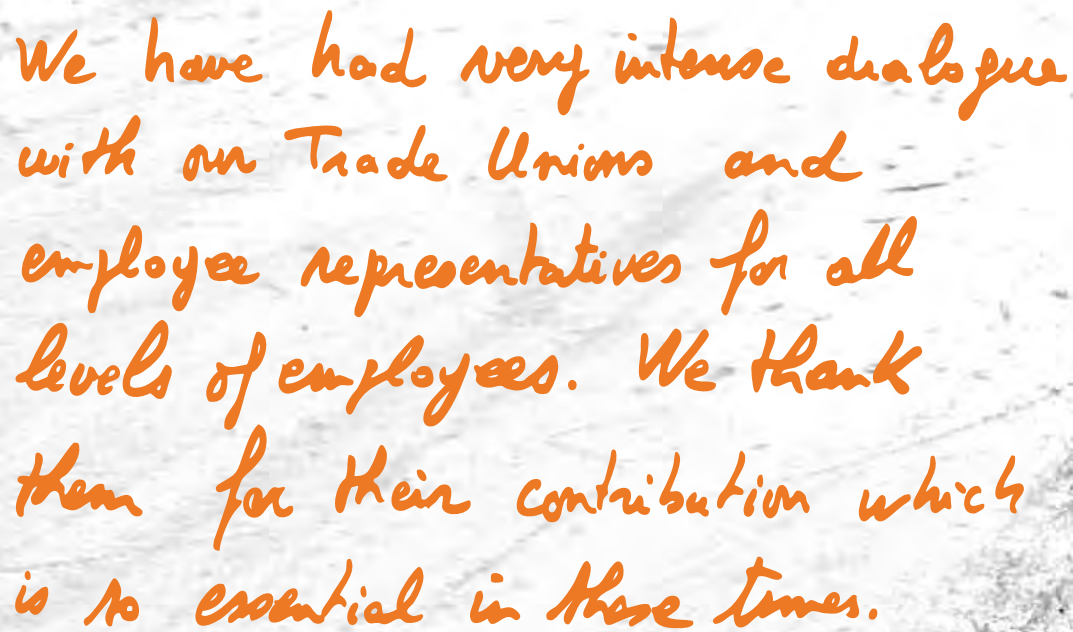 We have had very intense dialogue
with our Trade Unions and
employee representatives for all
levels of employees. We thank
them for their contribution which
is so essential in these times.